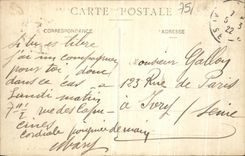 CARTE POSTALE
751
CORRESPONDANCE
ADRESSE
Si tu es libre
j'ai un compagnon
pour toi donc
dans ce cas à
Lundi matin
7h 1/2 rue des Capu
cines
cordiale poignée de main
Monsieur Galloy
123 Rue de Paris
à Ivry
Seine
22